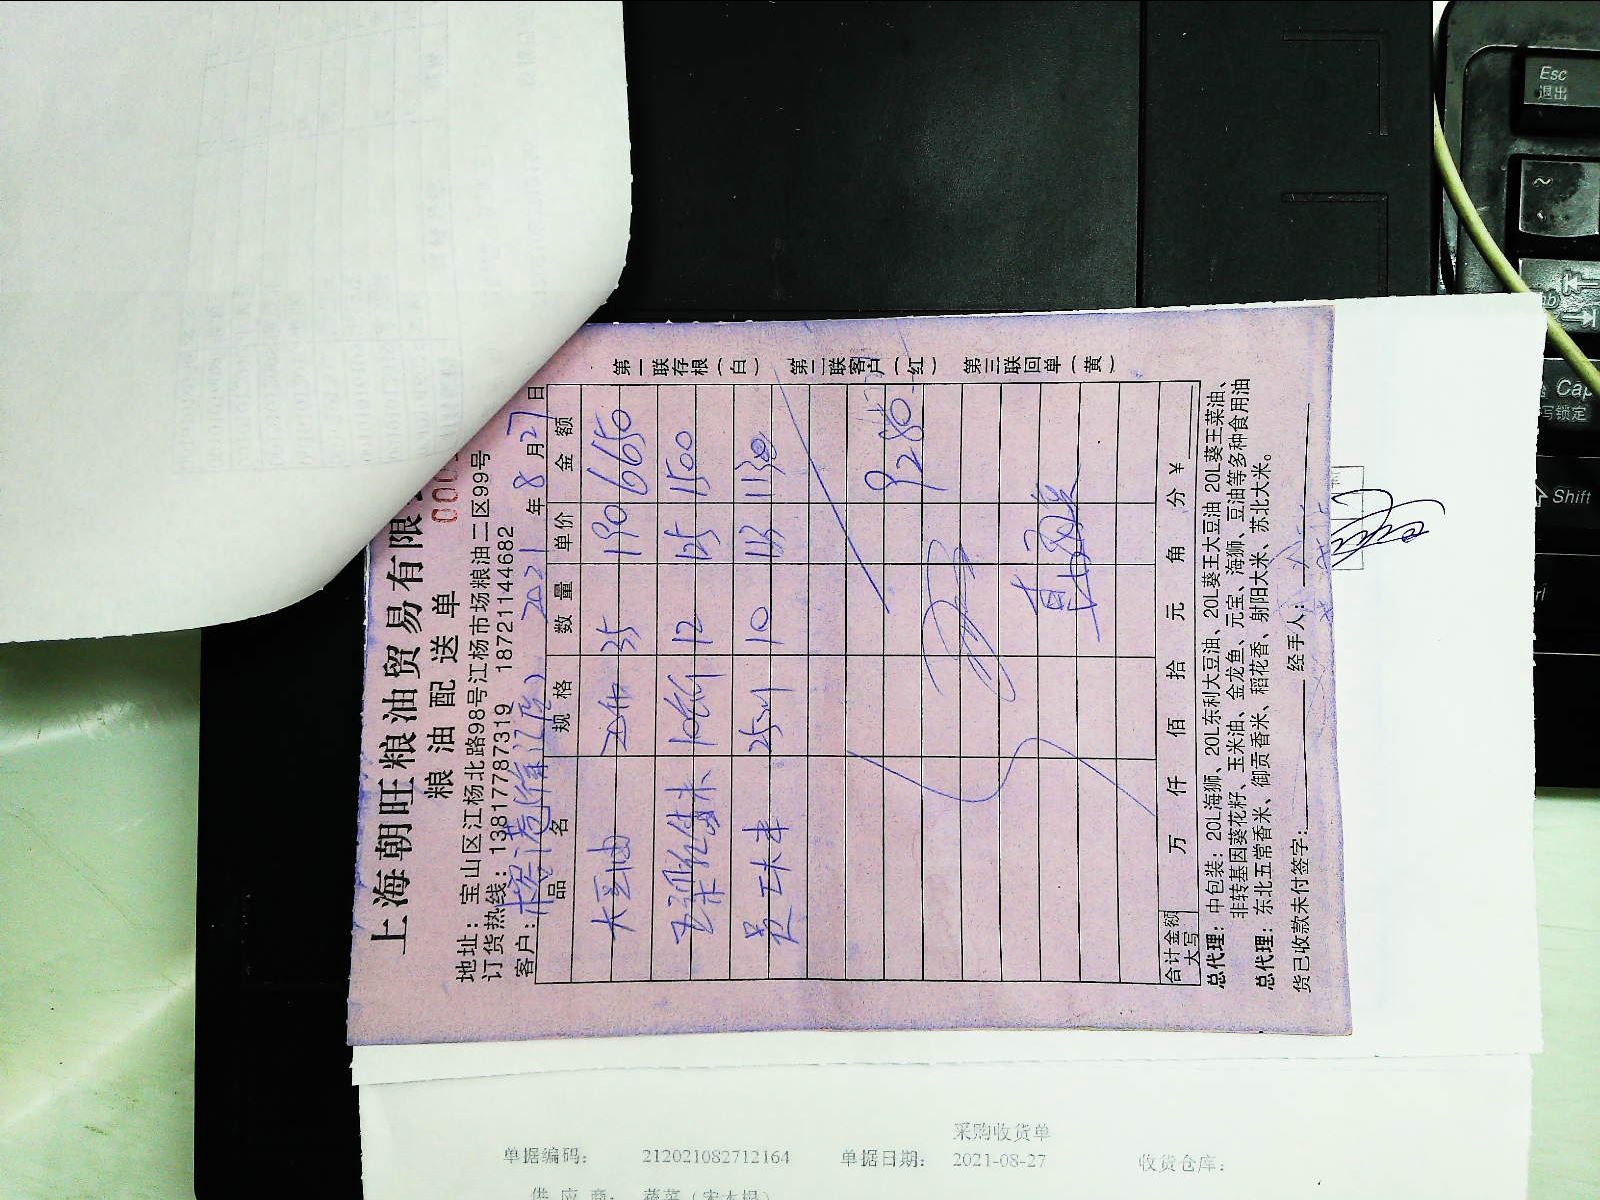 上海朝旺粮油贸易有限
粮油配送单
地址：宝山区江杨北路98号江杨市场粮油二区99号
订货热线：13817787319 18721144682
客户： 2021年8月27日
品名 规格 数量 单价 金额
大豆油 35 190 6650
12 125 1500
10 113 1130
9280
合计金额大写 万 仟 佰 拾 元 角 分 ¥
总代理：中包装：20L海狮、20L东利大豆油、20L葵王大豆油 20L葵王菜油、
非转基因葵花籽、玉米油、金龙鱼、元宝、海狮、豆油等多种食用油
总代理：东北五常香米、御贡香米、稻花香、射阳大米、苏北大米。
货已收款未付签字： 经手人：
第一联存根（白） 第二联客户（红） 第三联回单（黄）
采购收货单
单据编码： 212021082712164 单据日期： 2021-08-27 收货仓库：
供应商：
Esc
退出
~
Cap
写锁定
Shift